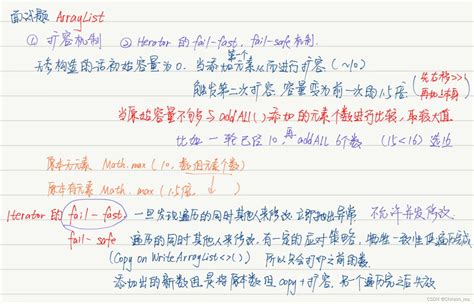 面试题 ArrayList
① 扩容机制 ② Iterator 的 fail-fast、fail-safe 机制.
无参构造的话初始容量为0. 当添加第一个元素从而进行扩容. (~10)
触发第二次扩容. 容量变为前一次的1.5倍. (先右移>>1 再加上本身)
当原始容量不够与addAll()添加的元素个数进行比较,取较大值.
比如 一轮已经10, 再addAll 6个数 (15<16) 选16
原本无元素 Math.max (10, 数组元素个数)
原本有元素 Math.max (1.5倍, ↓ )
Iterator 的 fail-fast 一旦发现遍历的同时其他人来修改,立即抛出异常 不允许并发修改.
fail-safe 遍历的同时其他人来修改,有一定的应对策略, 牺牲一致性使遍历完成
(Copy on WriteArrayList<>()) 所以只会打印之前的数.
添加出的新数组是将原本数组 copy+扩容. 另一个遍历完之后失效
CSDN